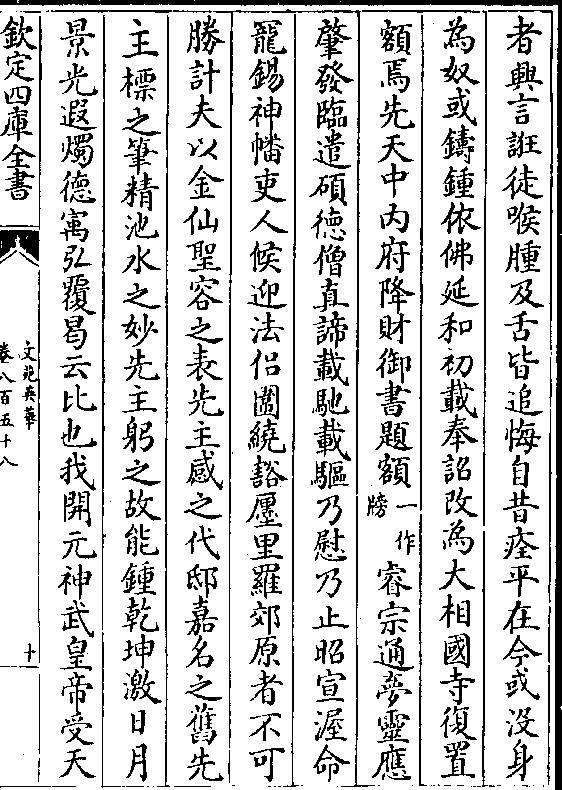 者興言誑徒喉腫及舌皆追悔自昔痊平在今或沒身
為奴或鑄鍾依佛延和初載奉詔改為大相國寺復置
額焉先天中內府降財御書題額一作牓睿宗通夢靈應
肇發臨遣碩德僧真諦載馳載驅乃慰乃止昭宣渥命
寵錫神幡吏人候迎法侶圍繞豁㕓里羅郊原者不可
勝計夫以金仙聖容之表先主感之代邸嘉名之舊先
主標之筆精池水之妙先主躬之故能鍾乾坤激日月
景光遐燭德寓弘覆曷云比也我開元神武皇帝受天
欽定四庫全書
文苑英華
卷八百五十八
十